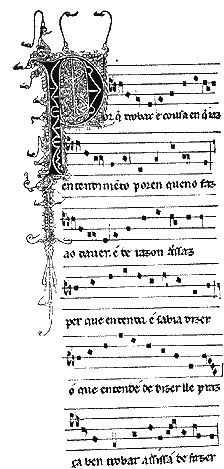 Porq̃ trobar e cousa en q̃ iaz
entendimẽto poren queno faz
ao dauer. e de razon assaz
per que entenda e sabia dizer
o que entende de dizer lle praz
ca ben trobar assi ssa de fazer